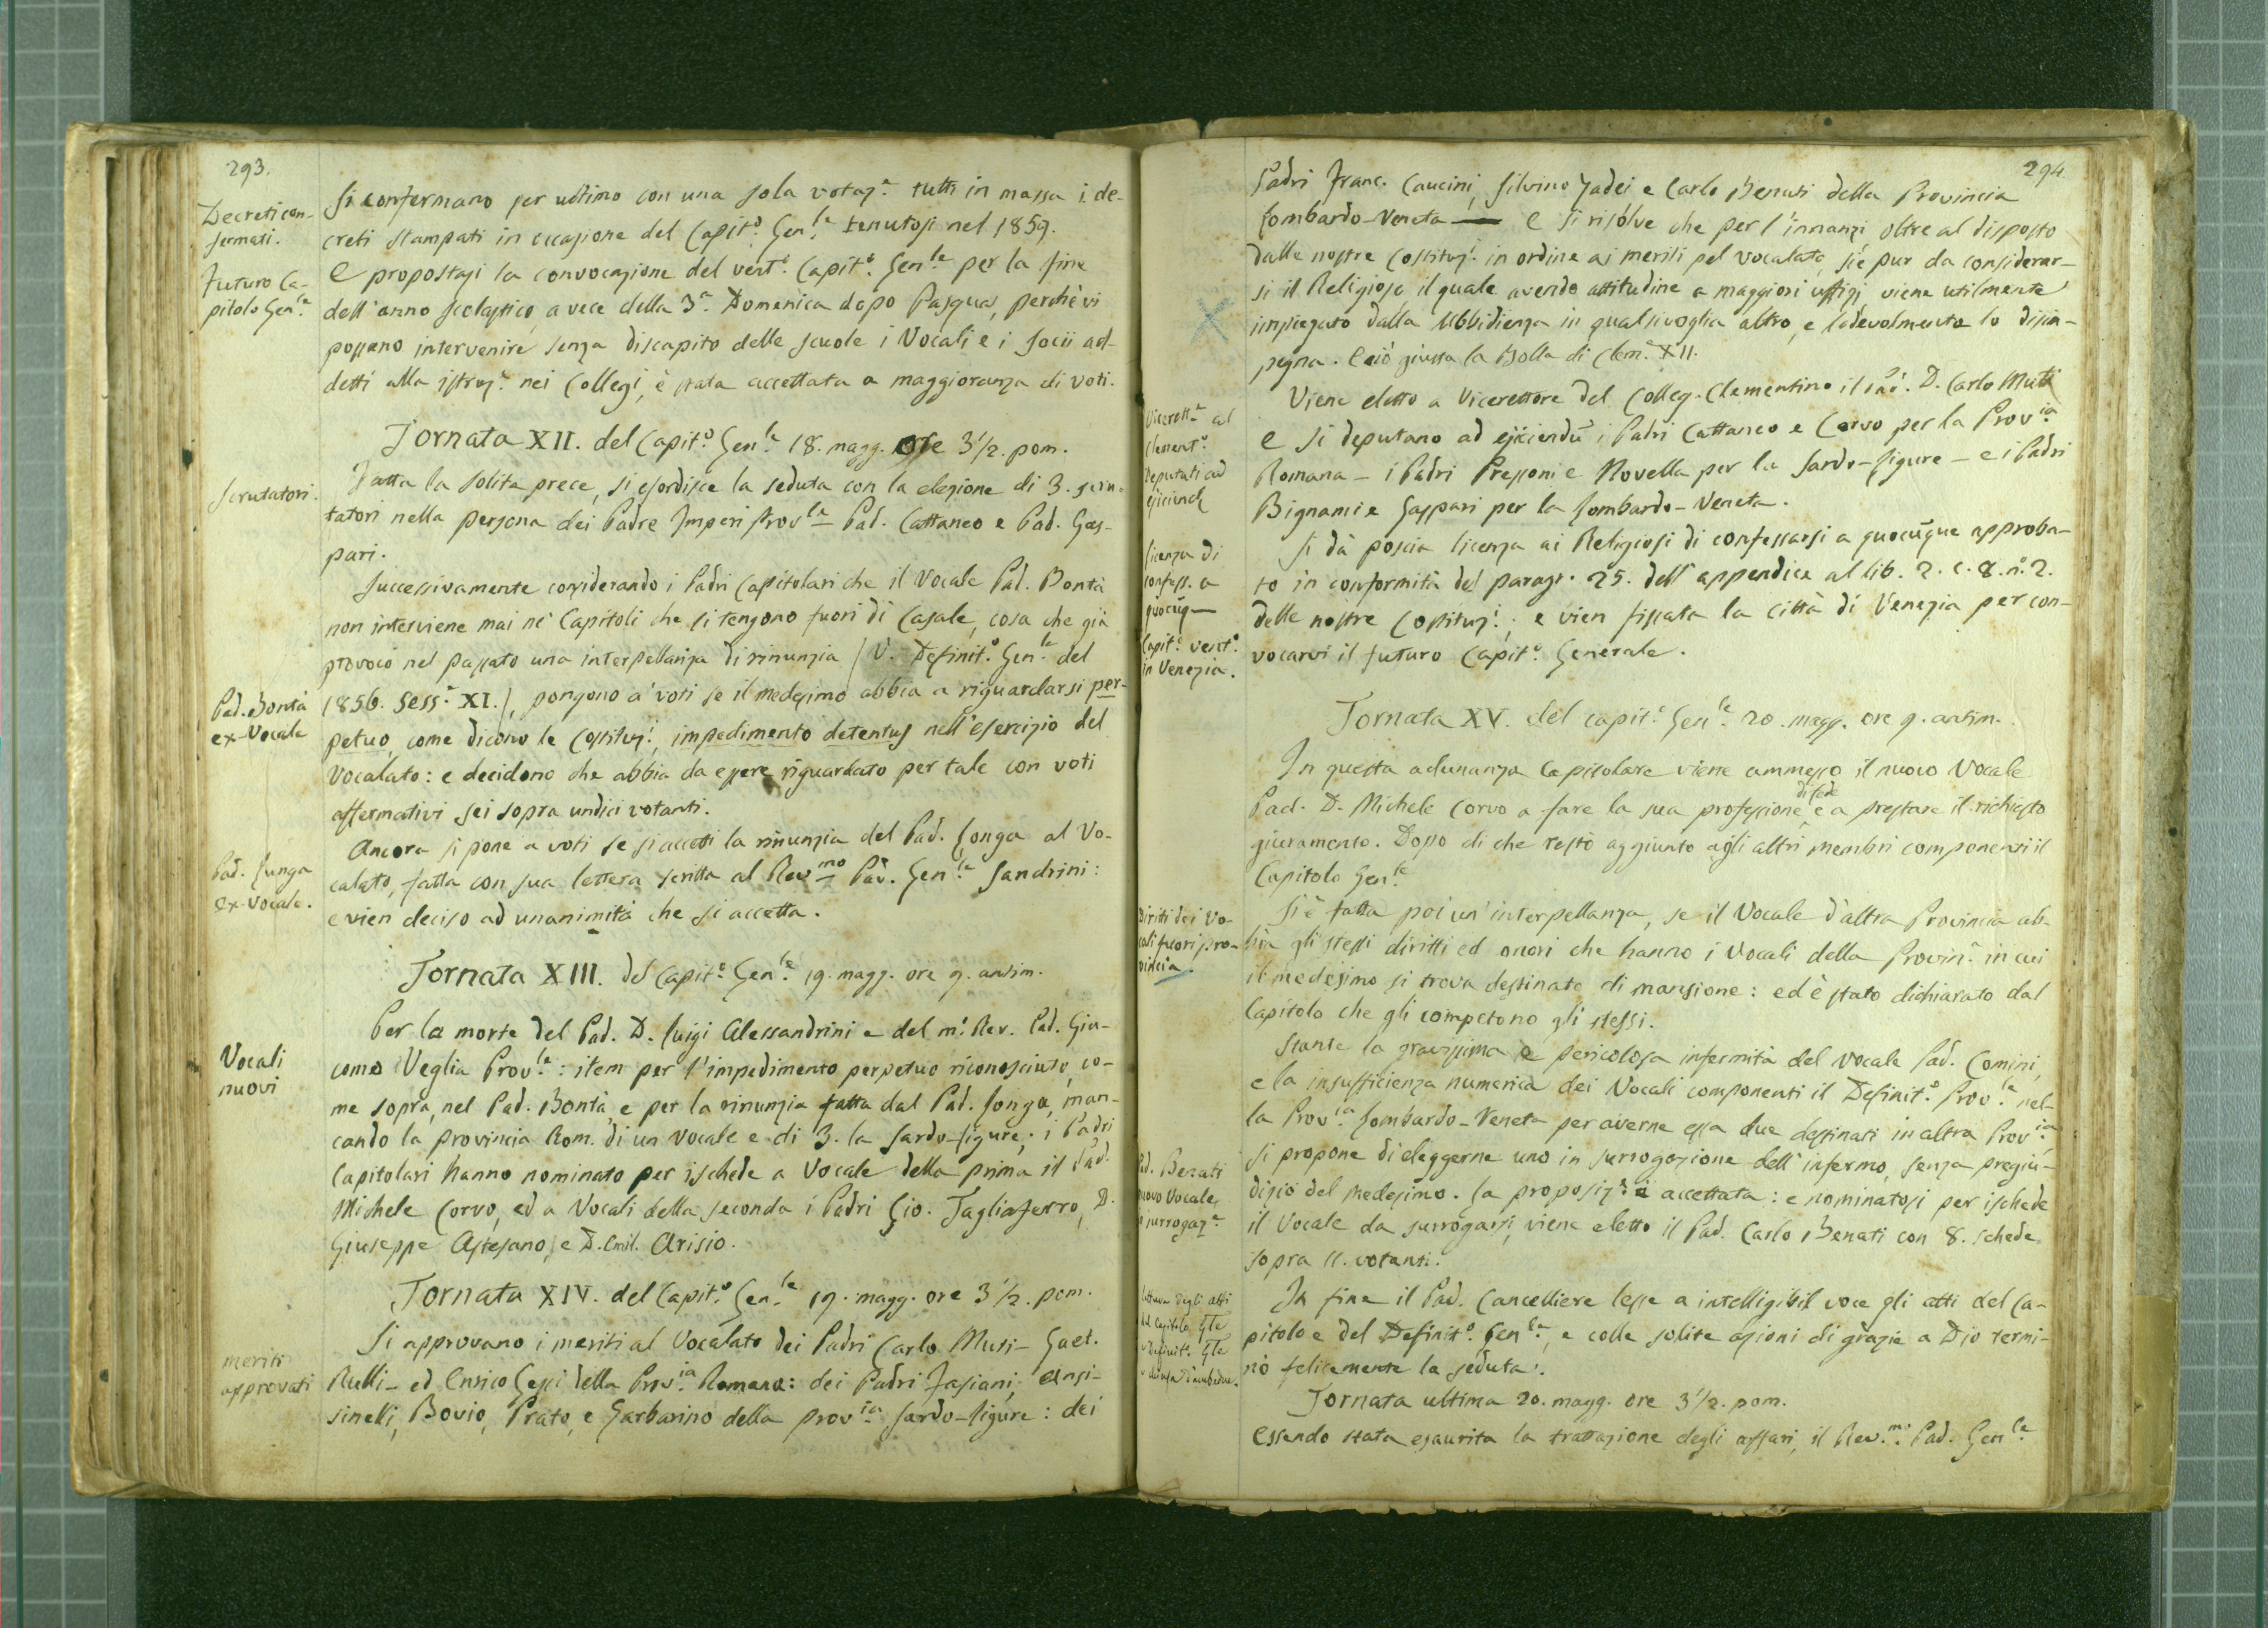 293.
Decreti con-
fermati.
Futuro Ca-
pitolo Gen.le
Si confermano per ultimo con una sola votaz.e tutti in massa i de-
creti stampati in occasione del Capit.o Gen.le tenutosi nel 1859.
E propostasi la convocazione del vent.o Capit.o Gen.le per la fine
dell'anno scolastico, a vece della 3.a Domenica dopo Pasqua, perchè vi
possano intervenire senza discapito delle scuole i Vocali e i socii ad-
detti alla istruz.e nei Collegi, è stata accettata a maggioranza di voti.
Tornata XII. del Capit.o Gen.le 18. magg. ore 3 1/2. pom.
Scrutatori.
Fatta la solita prece, si esordisce la seduta con la elezione di 3. scru-
tatori nella persona dei Padre Imperi Prov.le – Pad. Cattaneo e Pad. Gas-
pari.
Successivamente considerando i Padri Capitolari che il Vocale Pad. Bontà
non interviene mai ne' Capitoli che si tengono fuori di Casale, cosa che già
provocò nel passato una interpellanza di rinunzia (V. Definit.o Gen.le del
Pad. Bontà
ex-Vocale
1856. Sess.e XI.), pongono a' voti se il medesimo abbia a riguardarsi per-
petuo, come dicono le Costituz.i, impedimento detentus nell'esercizio del
Vocalato: e decidono che abbia da essere riguardato per tale con voti
affermativi sei sopra undici votanti.
Pad. Longa
ex-Vocale.
Ancora si pone a voti se si accetti la rinunzia del Pad. Longa al Vo-
calato, fatta con sua lettera scritta al Rev.mo Pad. Gen.le Sandrini:
e vien deciso ad unanimità che si accetta.
Tornata XIII. del Capit.o Gen.le 19. magg. ore 9. antim.
Vocali
nuovi
Per la morte del Pad. D. Luigi Alessandrini e del m.o Rev. Pad. Gia-
como Veglia Prov.le: item per l'impedimento perpetuo riconosciuto, co-
me sopra, nel Pad. Bontà, e per la rinunzia fatta dal Pad. Longa, man-
cando la provincia Rom. di un Vocale e di 3. la Sardo-Ligure; i Padri
Capitolari hanno nominato per ischede a Vocale della prima il Pad.
Michele Corvo, ed a Vocali della seconda i Padri Gio. Tagliaferro, D.
Giuseppe Astesano, e D. Emil. Arisio.
Tornata XIV. del Capit.o Gen.le 19. magg. ore 3 1/2. pom.
meriti
approvati
Si approvano i meriti al Vocalato dei Padri Carlo Muti – Gaet.
Rulli – ed Enrico Gessi della Prov.ia Romana: dei Padri Fasiani, Ansi-
sinelli, Bovio, Prato, e Garbarino della prov.ia Sardo-Ligure: dei
294
Padri Franc. Caucini, Silvino Gadei e Carlo Benati della Provincia
Lombardo-Veneta — E si risolve che per l'innanzi oltre al disposto
dalle nostre Costituz.i in ordine ai meriti pel vocalato, sie pur da considerar-
si il Religioso, il quale avendo attitudine a maggiori uffizj, viene utilmente
impiegato dalla Ubbidienza in qualsivoglia altro, e lodevolmente lo disim-
pegna. E ciò giusta la Bolla di Clem.e XII.
Vicerett.e al
Clement.o
Deputati ad
ejiciend.
Viene eletto a Vicerettore del Colleg. Clementino il Pad. D. Carlo Muti
E si deputano ad ejiciendũ i Padri Cattaneo e Corvo per la Prov.ia
Romana – i Padri Pressoni e Novella per la Sardo-Ligure – e i Padri
Bignami e Gaspari per la Lombardo-Veneta.
Licenza di
confess. a
quocũq—
Capit.o vent.o
in Venezia.
Si dà poscia licenza ai Religiosi di confessarsi a quocũque approba-
to in conformità del paragr. 25. dell'appendice al lib. 2. c. 8. n.o 2.
delle nostre Costituz.i; e vien fissata la città di Venezia per con-
vocarvi il futuro Capit.o Generale.
Tornata XV. del capit.o Gen.le 20. magg. ore 9. antim.
In questa adunanza Capitolare viene ammesso il nuovo Vocale
Pad. D. Michele Corvo a fare la sua professione di fede e a prestare il richiesto
giuramento. Dopo di che restò aggiunto agli altri membri componenti il
Capitolo Gen.le
Diritti dei Vo-
cali fuori pro-
vincia.
Si è fatta poi un'interpellanza, se il Vocale d'altra Provincia ab-
bia gli stessi diritti ed onori che hanno i Vocali della Provin.a in cui
il medesimo si trova destinato di mansione: ed è stato dichiarato dal
Capitolo che gli competono gli stessi.
Stante la gravissima e pericolosa infermità del Vocale Pad. Comini,
e la insufficienza numerica dei Vocali componenti il Definit.o Prov.le nel-
la Prov.ia Lombardo-Veneta per averne essa due destinati in altra Prov.ia
Pad. Benati
nuovo Vocale
surrogaz.e
si propone di eleggerne uno in surrogazione dell'infermo, senza pregiu-
dizio del medesimo. La proposiz.e è accettata: e nominatosi per ischede
il Vocale da surrogarsi, viene eletto il Pad. Carlo Benati con 8. schede
sopra 11. votanti.
Lettura degli atti
del Capitolo Gle
e definit. Gle
e chiusa d'ambedue.
In fine il Pad. Cancelliere lesse a intelligibil voce gli atti del Ca-
pitolo e del Definit.o Gen.le, e colle solite azioni di grazie a Dio termi-
nò felicemente la seduta.
Tornata ultima 20. magg. ore 3 1/2. pom.
Essendo stata esaurita la trattazione degli affari, il Rev.mo Pad. Gen.le